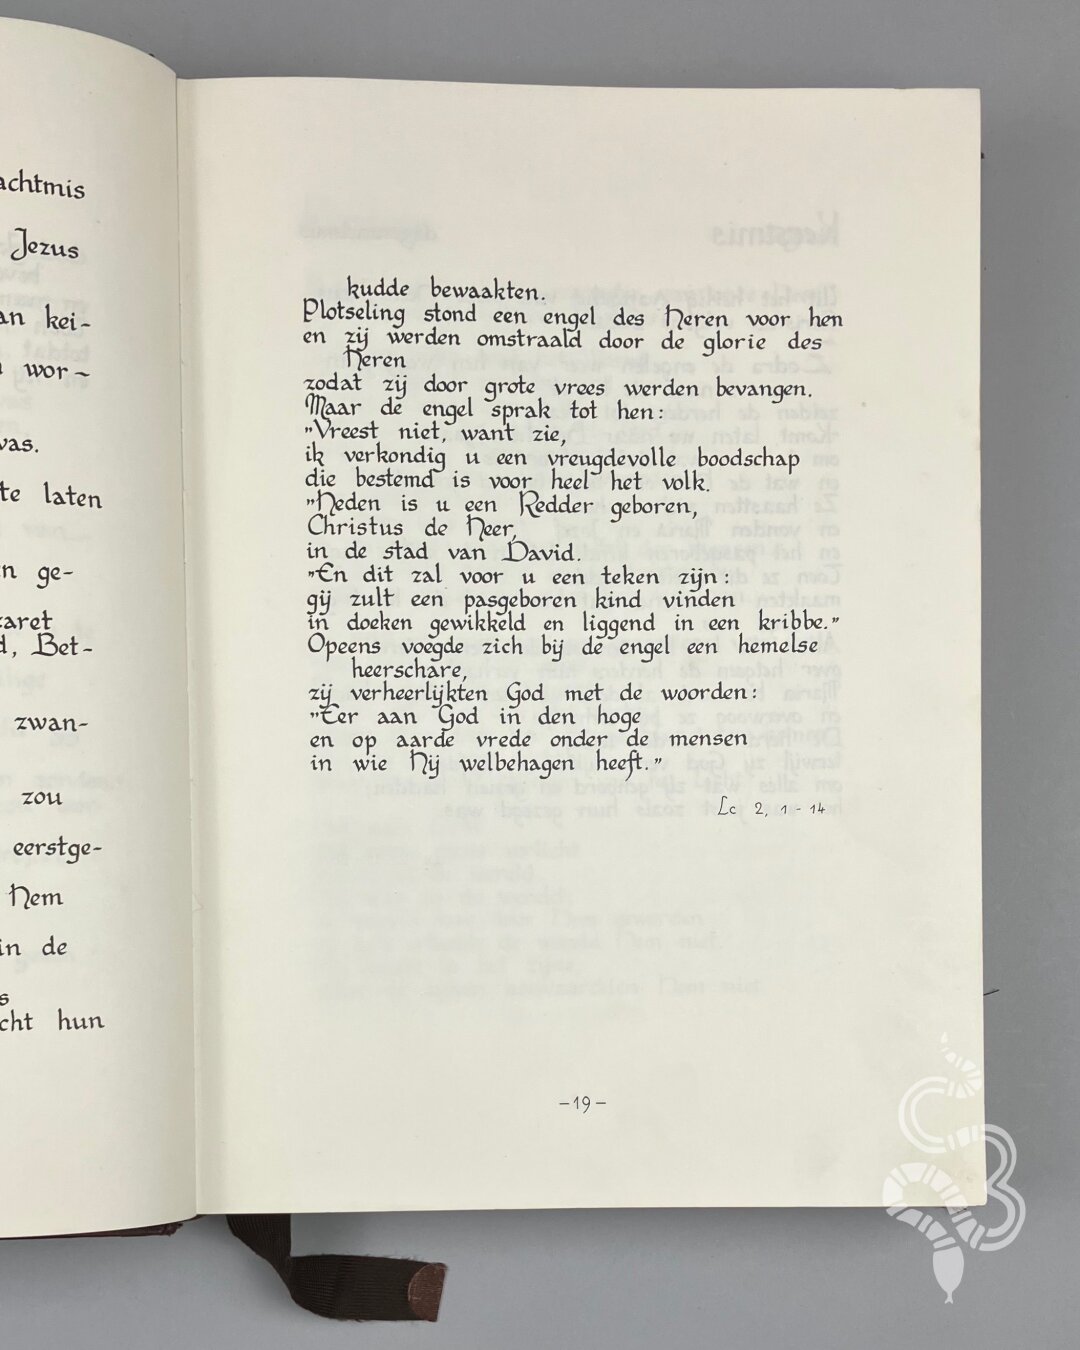 achtmis
Jezus
an kei-
wor-
was.
te laten
n ge-
zaret
d, Bet-
zwan-
zou
eerstge-
Hem
in de
s
cht hun
kudde bewaakten.
Plotseling stond een engel des Heren voor hen
en zij werden omstraald door de glorie des
Heren
zodat zij door grote vrees werden bevangen.
Maar de engel sprak tot hen:
"Vreest niet, want zie,
ik verkondig u een vreugdevolle boodschap
die bestemd is voor heel het volk.
"Heden is u een Redder geboren,
Christus de Heer,
in de stad van David.
"En dit zal voor u een teken zijn:
gij zult een pasgeboren kind vinden
in doeken gewikkeld en liggend in een kribbe."
Opeens voegde zich bij de engel een hemelse
heerschare,
zij verheerlijkten God met de woorden:
"Eer aan God in den hoge
en op aarde vrede onder de mensen
in wie Hij welbehagen heeft."
Lc 2, 1 - 14
-19-